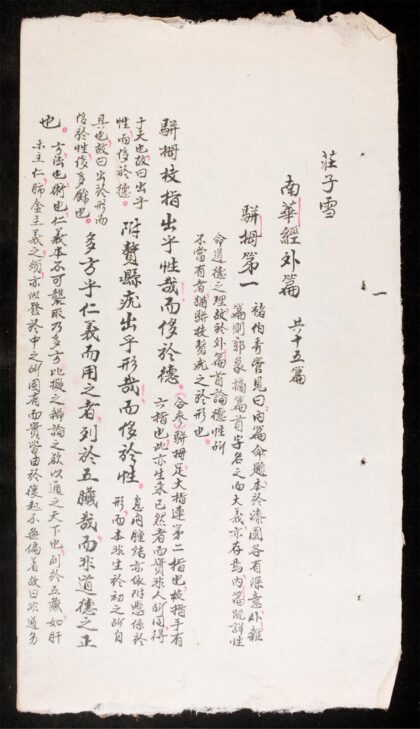 一
莊子雪
南華經外篇 共十五篇
駢拇第一
褚伯秀管見曰內篇命題本於漆園各有深意外雜
篇則郭象摘篇首字名之而大義亦存焉內篇既詳性
命道德之理故於外篇首論德性所
不當有者猶駢枝贅疣之於形也
駢拇枝指出乎性哉而侈於德
合參駢拇足大指連第二指也枝指手有
六指也此亦生來已然者而實非人所同得
于天也故曰出乎
性而侈於德
附贅縣疣出乎形哉而侈於性
息肉腫結亦依附懸係於
形而本非生於初之所自
具也故曰出於形而
侈於性侈多餘也
多方乎仁義而用之者列於五臟哉而非道德之正
也
方法也術也仁義本不可襲取乃多方比擬之辯論之欲以通之天下也列於五藏如肝
木主仁肺金主義之類亦以發於中之所固有而實皆由於後起不無偏着故曰非道